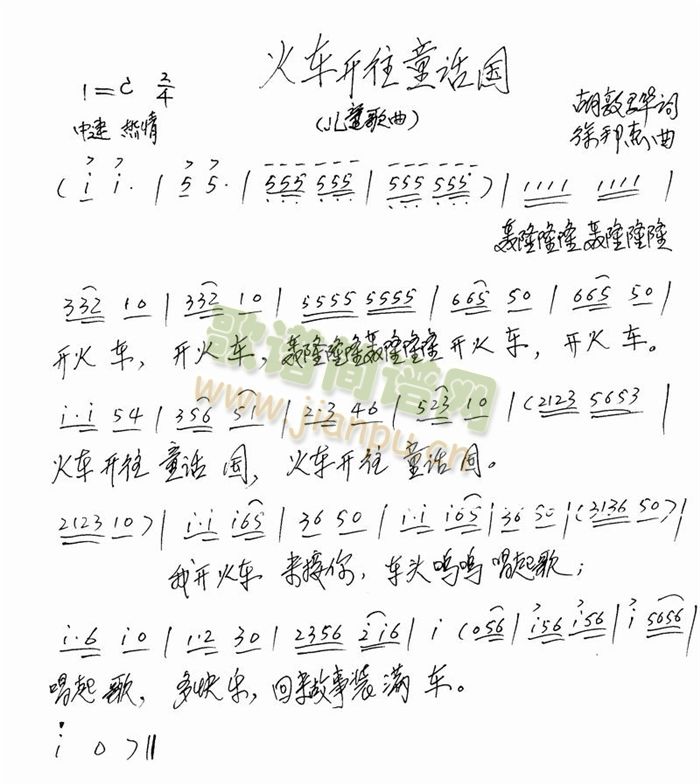 火车开往童话国
1=C 2/4
中速 热情
(儿童歌曲)
胡敦华词
徐邦杰曲
( i i. | 5 5. | 555 555 | 555 555 ) | 1111 1111 |
轰隆隆隆轰隆隆隆
332 10 | 332 10 | 5555 5555 | 665 50 | 665 50 |
开火 车, 开火 车, 轰隆隆隆轰隆隆隆 开火 车, 开火 车。
i.i 54 | 356 51 | 2.3 46 | 523 10 | (2123 5653 |
火车开往 童话 国, 火车开往 童话 国。
2123 10 ) | i.i i65 | 36 50 | i.i i65 | 36 50 | (3136 50 ) |
我开火车 来接你, 车头呜呜 唱起歌;
i.6 i0 | 1.2 30 | 2356 2i6 | i (056 | i56 i56 | i 5656 |
唱起歌, 多快乐, 回来故事装满 车。
i 0 ) ||
歌谱简谱网
www.jianpu.cn